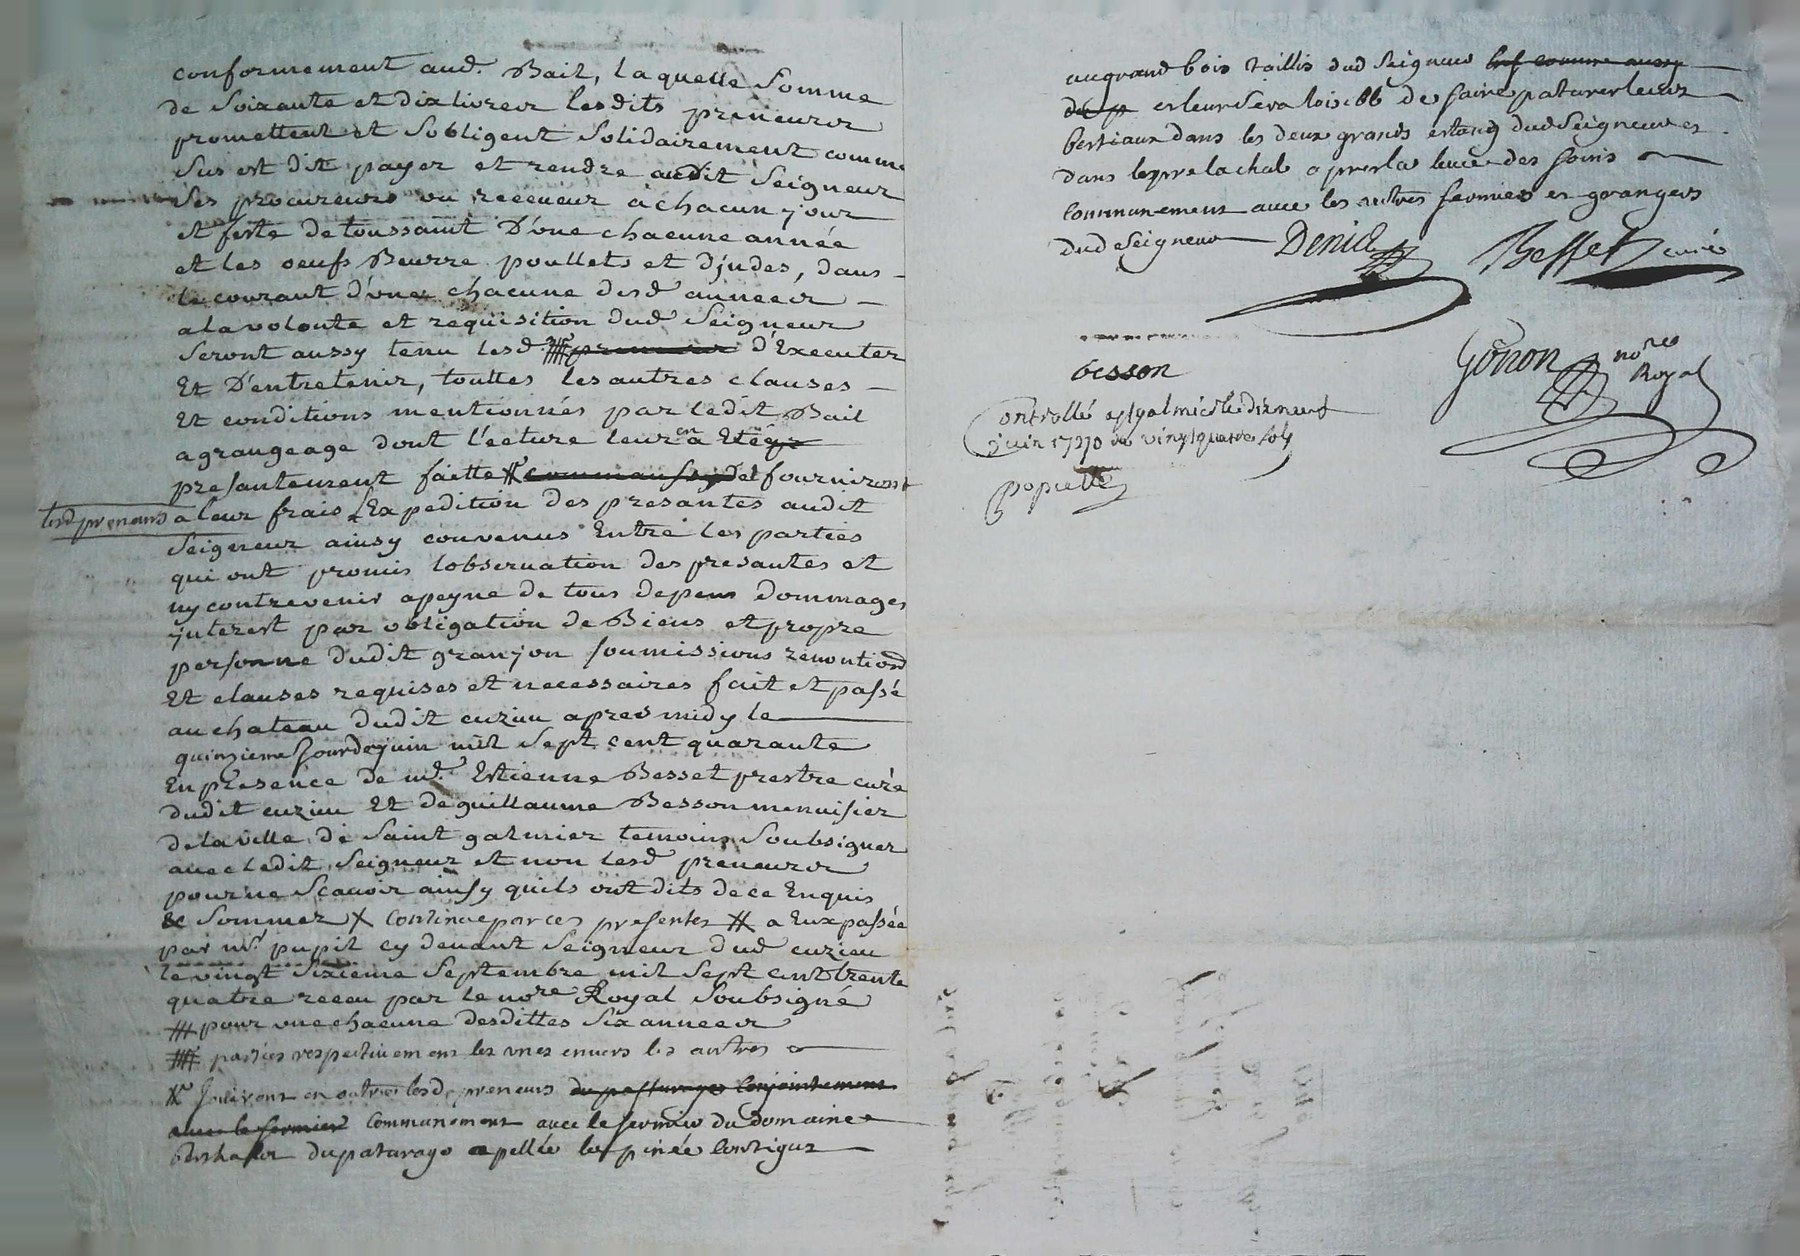 conformement aud. Bail, laquelle Somme
de Soixante et dix livres lesdits preneurs
promettent et Sobligent Solidairement comme
Sus est dit payer et rendre audit Seigneur
Ses procureurs ou receveur à chacun jour
et feste de toussaint D'une chacune année
et les oeufs Beurre poullets et Djndes, dans
le courant d'une chacune desd années
a la volonté et requisition dud Seigneur
Seront aussy tenu lesd preneurs d'Executer
Et D'entretenir, touttes les autres clauses
Et conditions mentionnés par ledit Bail
a grangeage dont lecture leur en a Eté
presantement faitte fourniront
lesd preneurs a leur frais Expedition des presantes audit
Seigneur ainsy convenus Entre les parties
qui ont promis lobservation des presantes et
ny contrevenir apeyne de tous depens dommages
jnterest par obligation de Biens et propre
personne dudit granjon soumissions renontions
Et clauses requises et necessaires fait et passé
au chateau dudit cuzieu apres midy le
quinzieme Jour de juin mil Sept cent quarante
En presence de mr. Estienne Besset prestre curé
dudit cuzieu Et de guillaume Besson menuisier
de la ville de Saint galmier temoins Soubsignez
avec ledit Seigneur et non lesd preneurs
pour ne Scavoir ainsy quils ont dits de ce Enquis
& Sommez X continue par ces presentes # a Eux passée
par mr. pupil cy devant Seigneur dud cuzieu
le vingt Sixieme Septembre mil Sept cent trente
quatre receu par le nore Royal Soubsigné
# pour une chacune desdittes Six années
# parties respectivement les unes envers les autres
Joüiront en outre lesd. preneurs du passurages conjointement
avec le fermier communement avec le fermier du Domaine
du paturage apellée les pinée contigus
au grand bois taillis dud Seigneur
et leur sera loisible de faire paturer leurs
bestiaux dans les deux grands estang dud Seigneur et
dans le pre lachal apres la levée des foins
communement avec les autres fermiers et grangers
dud Seigneur Denis Besset curé
besson Gonon nore Royal
Controllé a St galmier le dixneuf
juin 1740 vingt quatre sols
popielle